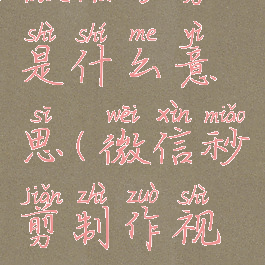 shì shí me yì
是什么意
sī wēi xìn miǎo
思(微信秒
jiǎn zhì zuò shì
剪制作视